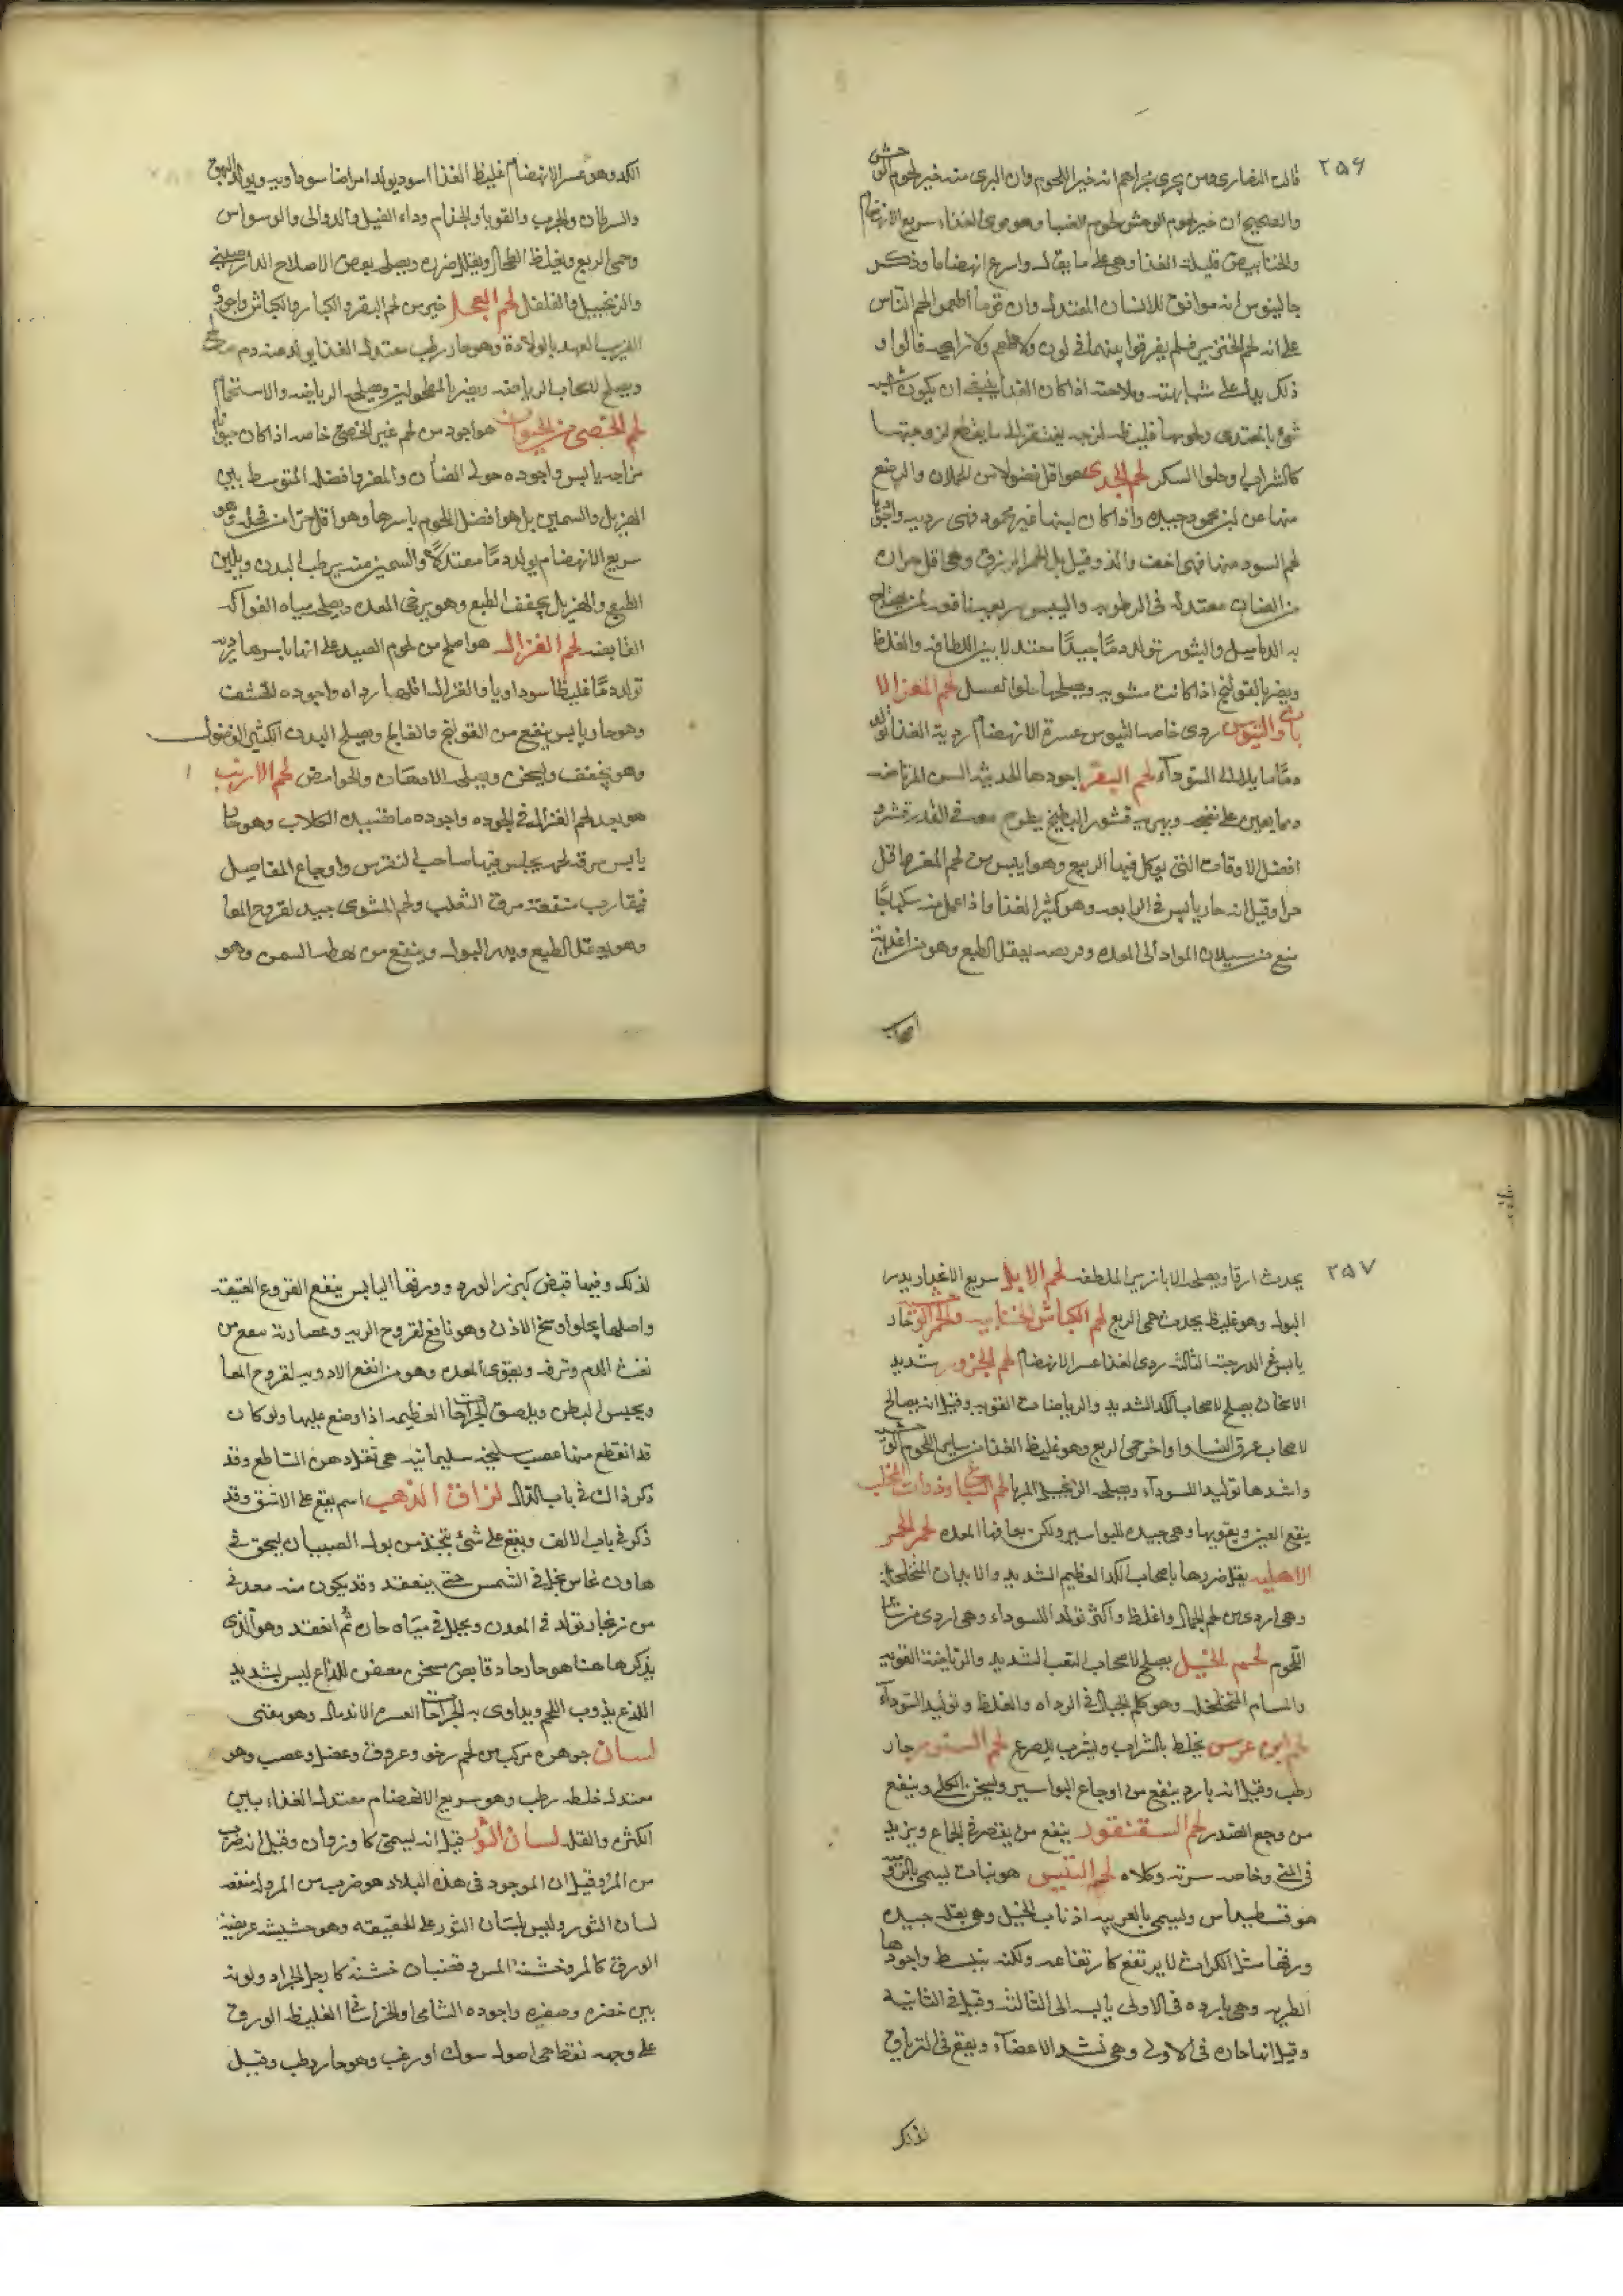 ٢٥۶
قالت النصارى ومن يجرى مجراهم انه خير اللحوم وان البرى منه خير لحوم الوحش
والصحيح ان خير لحوم الوحش لحوم الظبا وهو قوى الغذاء سريع الانهضام
والخنانيص قليلة الغذا وهى على ما يقال واسرع انهضاما وذكر
جالينوس انه موافق للانسان المعتدل وان قوما اطعموا لحم الناس
على انه لحم الخنزير فلم يفرقوا بينهما فى لون ولا طعم ولا رايحه قالوا و
ذلك يدل على شبهايته وملاحته اذا كان الغذا ينبغى ان يكون شبيه
شئ بالمغتدى ولحومها غليظه لزجه يفتقر الى ما يقطع لزوجتها
كالشراب وحلوا السكر لحم الجدى هو اقل فضولا من الحملان والرضع
منها عن لبن محمود جيده واذا كان لبنها غير محمود فهى رديه واجود
لحم السود منها فهى اخف والذ وقيل بل الحمر الزرق وهى اقل حراره
من الضان معتدله فى الرطوبه واليبس
به الدماميل والبثور تولد دمًا جيدًا معتدلا بين اللطافه والغلظ
ويضر بالقولنج اذا كانت مشويه ويصلحها حلوا العسل لحم المعز الا
والتيوس ردى خاصه التيوس عسرة الانهضام ردية الغذا تولد
دمًا مايلا الى السودآء لحم البقر اجودها الحديثه السن المرتاضه
ومما يعين على نضجه وتهريه قشور البطيخ يطرح معه فى القدر قشره
افضل الاوقات التى يوكل فيها الربيع وهو ايبس من لحم المعز واقل
حرا وقيل انه حار يابس فى الرابعه وهو كثير الغذا واذا عمل منه سكباجًا
منع من سيلان المواد الى المعده وقريصه يعقل الطبع وهو من اغذية
اصحاب
الكد وهو عسر الانهضام غليظ الغذا اسود يولد امراضا سوداويه ويولد البهق
والسرطان والجرب والقوبا والجذام وداء الفيل والدوالى والوسواس
وحمى الربع ويغلظ الطحال ويقلل ضرره ويصلحه بعض الاصلاح الدارصينى
والزنجبيل والفلفل لحم العجل خير من لحم البقر والكبار والكباش واجوده
القريب العهد بالولادة وهو حار رطب معتدل الغذا يولد عنه دم صالح
ويصلح لاصحاب الرياضه ويضر بالمطحولين ويصلحه الرياضه والاستحمام
لحم الخصى من الحيوان هو اجود من لحم غير الخصى خاصه اذا كان
مزاجه يابس واجوده حولى الضأن والمعز وافضله المتوسط بين
الهزيل والسمين بل هو افضل اللحوم باسرها وهو اقل حرا من فحله وهو
سريع الانهضام يولد دمًا معتدلاً والسمين منه يرطب البدن ويلين
الطبع والهزيل يجفف الطبع وهو يرخى المعده ويصلحه مياه الفواكه
القابضه لحم الغزال هو اصلح من لحوم الصيد على انها باسرها رديه
تولد دمًا غليظا سوداويا والغزال اقلها رداه واجوده الخشف
وهو حار يابس ينفع من القولنج والفالج ويصلح البدن الكثير الفضول
وهو يجفف ويسخن ويصلحه الادهان والحوامض لحم الارنب
هو بعد لحم الغزال فى الجوده واجوده ما تصيده الكلاب وهو حار
يابس مرقته يجلس فيها صاحب النقرس واوجاع المفاصل
فيقارب منفعته مرق الثعلب ولحم المشوى جيد لقروح المعا
وهو يعقل الطبع ويدر البول وينفع من هم السمن وهو
٢٥٧
يحدث ارقا ويصلحه الابازير الملطفه لحم الايل سريع الانحدار يدر
البول وهو غليظ يحدث حمى الربع لحم الكباش الجبليه والحمر الوحشيه حار
يابس فى الدرجة الثالثه ردى الغذا عسر الانهضام لحم الجزور شديد
الاسخان يصلح لاصحاب الكد الشديد والرياضات القويه وقيل انه صالح
لاصحاب عرق النسا واواخر حمى الربع وهو غليظ الغذا من ساير اللحوم الوحشيه
واشدها توليدا للسودآء ويصلحه الزنجبيل المربا لحم السباع وذوات المخلب
ينفع العين ويقويها وهى جيده للبواسير ولكن يعافها المعده لحم الحمر
الاهليه يقل ضررها باصحاب الكد العظيم الشديد والابدان المتخلخله
وهى اردى من لحم الجمال واغلظ واكثر تولدا للسوداء وهى اردى من ساير
اللحوم لحم الخيل يصلح لاصحاب التعب الشديد والرياضة القويه
والمسام المتخلخله وهو كلحم الجمال فى الرداه والغلظ وتوليد السودآء
لحم ابن عرس يخلط بالشراب ويشرب للصرع لحم السنور حار
رطب وقيل انه بارد ينفع من اوجاع البواسير ويسخن الكلى وينفع
من وجع الظهر لحم السقنقور ينفع من يقصر فى الجماع ويزيد
فى المنى وخاصه سرته وكلاه لحم التيس هو نبات يسمى باليونانيه
هو قسطيداس ويسمى بالعربيه اذناب الخيل وهى بقله جيده
ورقها مثل الكراث لا يرتفع كارتفاعه ولكنه ينبسط واجودها
الطريه وهى بارده فى الاولى يابسه الى الثالثه وقيل فى الثانيه
وقيل انها حاره فى الاولى وهى تشد الاعضآء ويقع فى الترياق
لذلك
لذلك وفيها قبض كبزر الورد وورقها اليابس ينفع القروح العتيقه
واصلها يجلوا وسخ الاذن وهو نافع لقروح الريه وعصارته تنفع من
نفث الدم ونزفه ويقوى المعده وهو من انفع الادويه لقروح المعا
ويحبس البطن ويلصق الجراحات العظيمه اذا وضع عليها ولو كان
قد انقطع منها عصب سليخه سليمانيه هى تفلا دهن الساطع وقد
ذكر ذالك فى باب الدال لزاق الذهب اسم يقع على الاشق وقد
ذكر فى باب الالف ويقع على شئ يتخذ من بول الصبيان يسحق فى
هاون نحاس بخل فى الشمس حتى ينعقد وقد يكون منه معدنى
من زنجار تولد فى المعدن ويجلل فى مياه حاره ثم انعقد وهو الذى
يذكر ها هنا هو حار حاد قابض مسخن معفن للذاع ليس بشديد
اللذع يذوب اللحم ويداوى به الجراحات العسره الاندمال وهو مقئى
لسان جوهره مركب من لحم رخو وعروق وعضل وعصب وهو
معتدل خلطه رطب وهو سريع الانهضام معتدل الغذاء بين
الكثرة والقله لسان الثور قيل انه يسمى كاوزوان وقيل انه ضرب
من المرو وقيل ان الموجود فى هذه البلاد هو ضرب من المرو له منفعه
لسان الثور وليس بلسان الثور على الحقيقه وهو حشيشه عريضة
الورق كالمرو خشنة المس وقضبان خشنه كارجل الجراد ولونه
بين خضره وصفره واجوده الشامى والخراسانى الغليظ الورق
على وجهه نقط هى اصول سوك او زغب وهو حار رطب وقيل